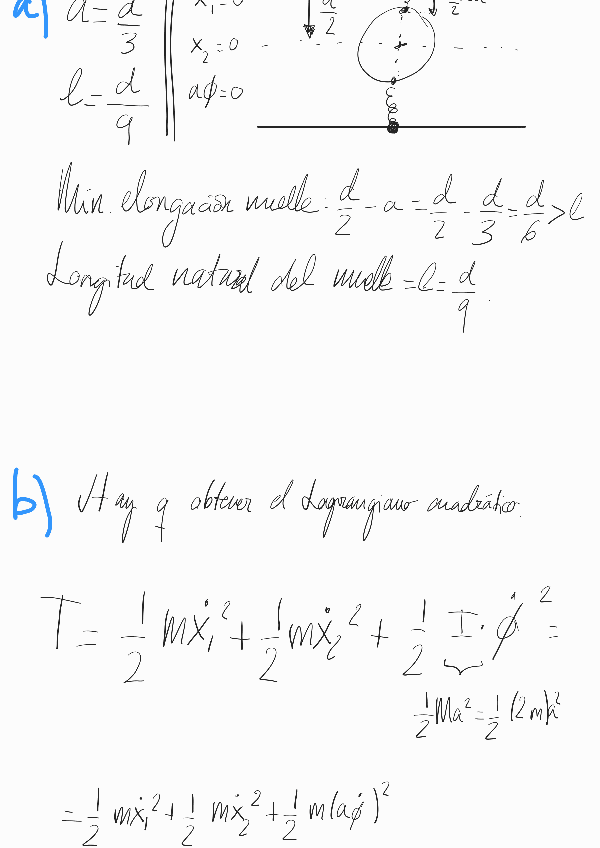 a) a = d/3 x₁=0 d/2
x₂=0
l = d/9 aϕ=0
Min. elongación muelle: d/2 - a = d/2 - d/3 = d/6 > l
Longitud natural del muelle = l = d/9.
b) Hay q obtener el Lagrangiano cuadrático.
T = 1/2 mẋ₁² + 1/2 mẋ₂² + 1/2 I·ϕ̇² =
1/2 Ma² = 1/2 (2m)a²
= 1/2 mẋ₁² + 1/2 mẋ₂² + 1/2 m(aϕ̇)²